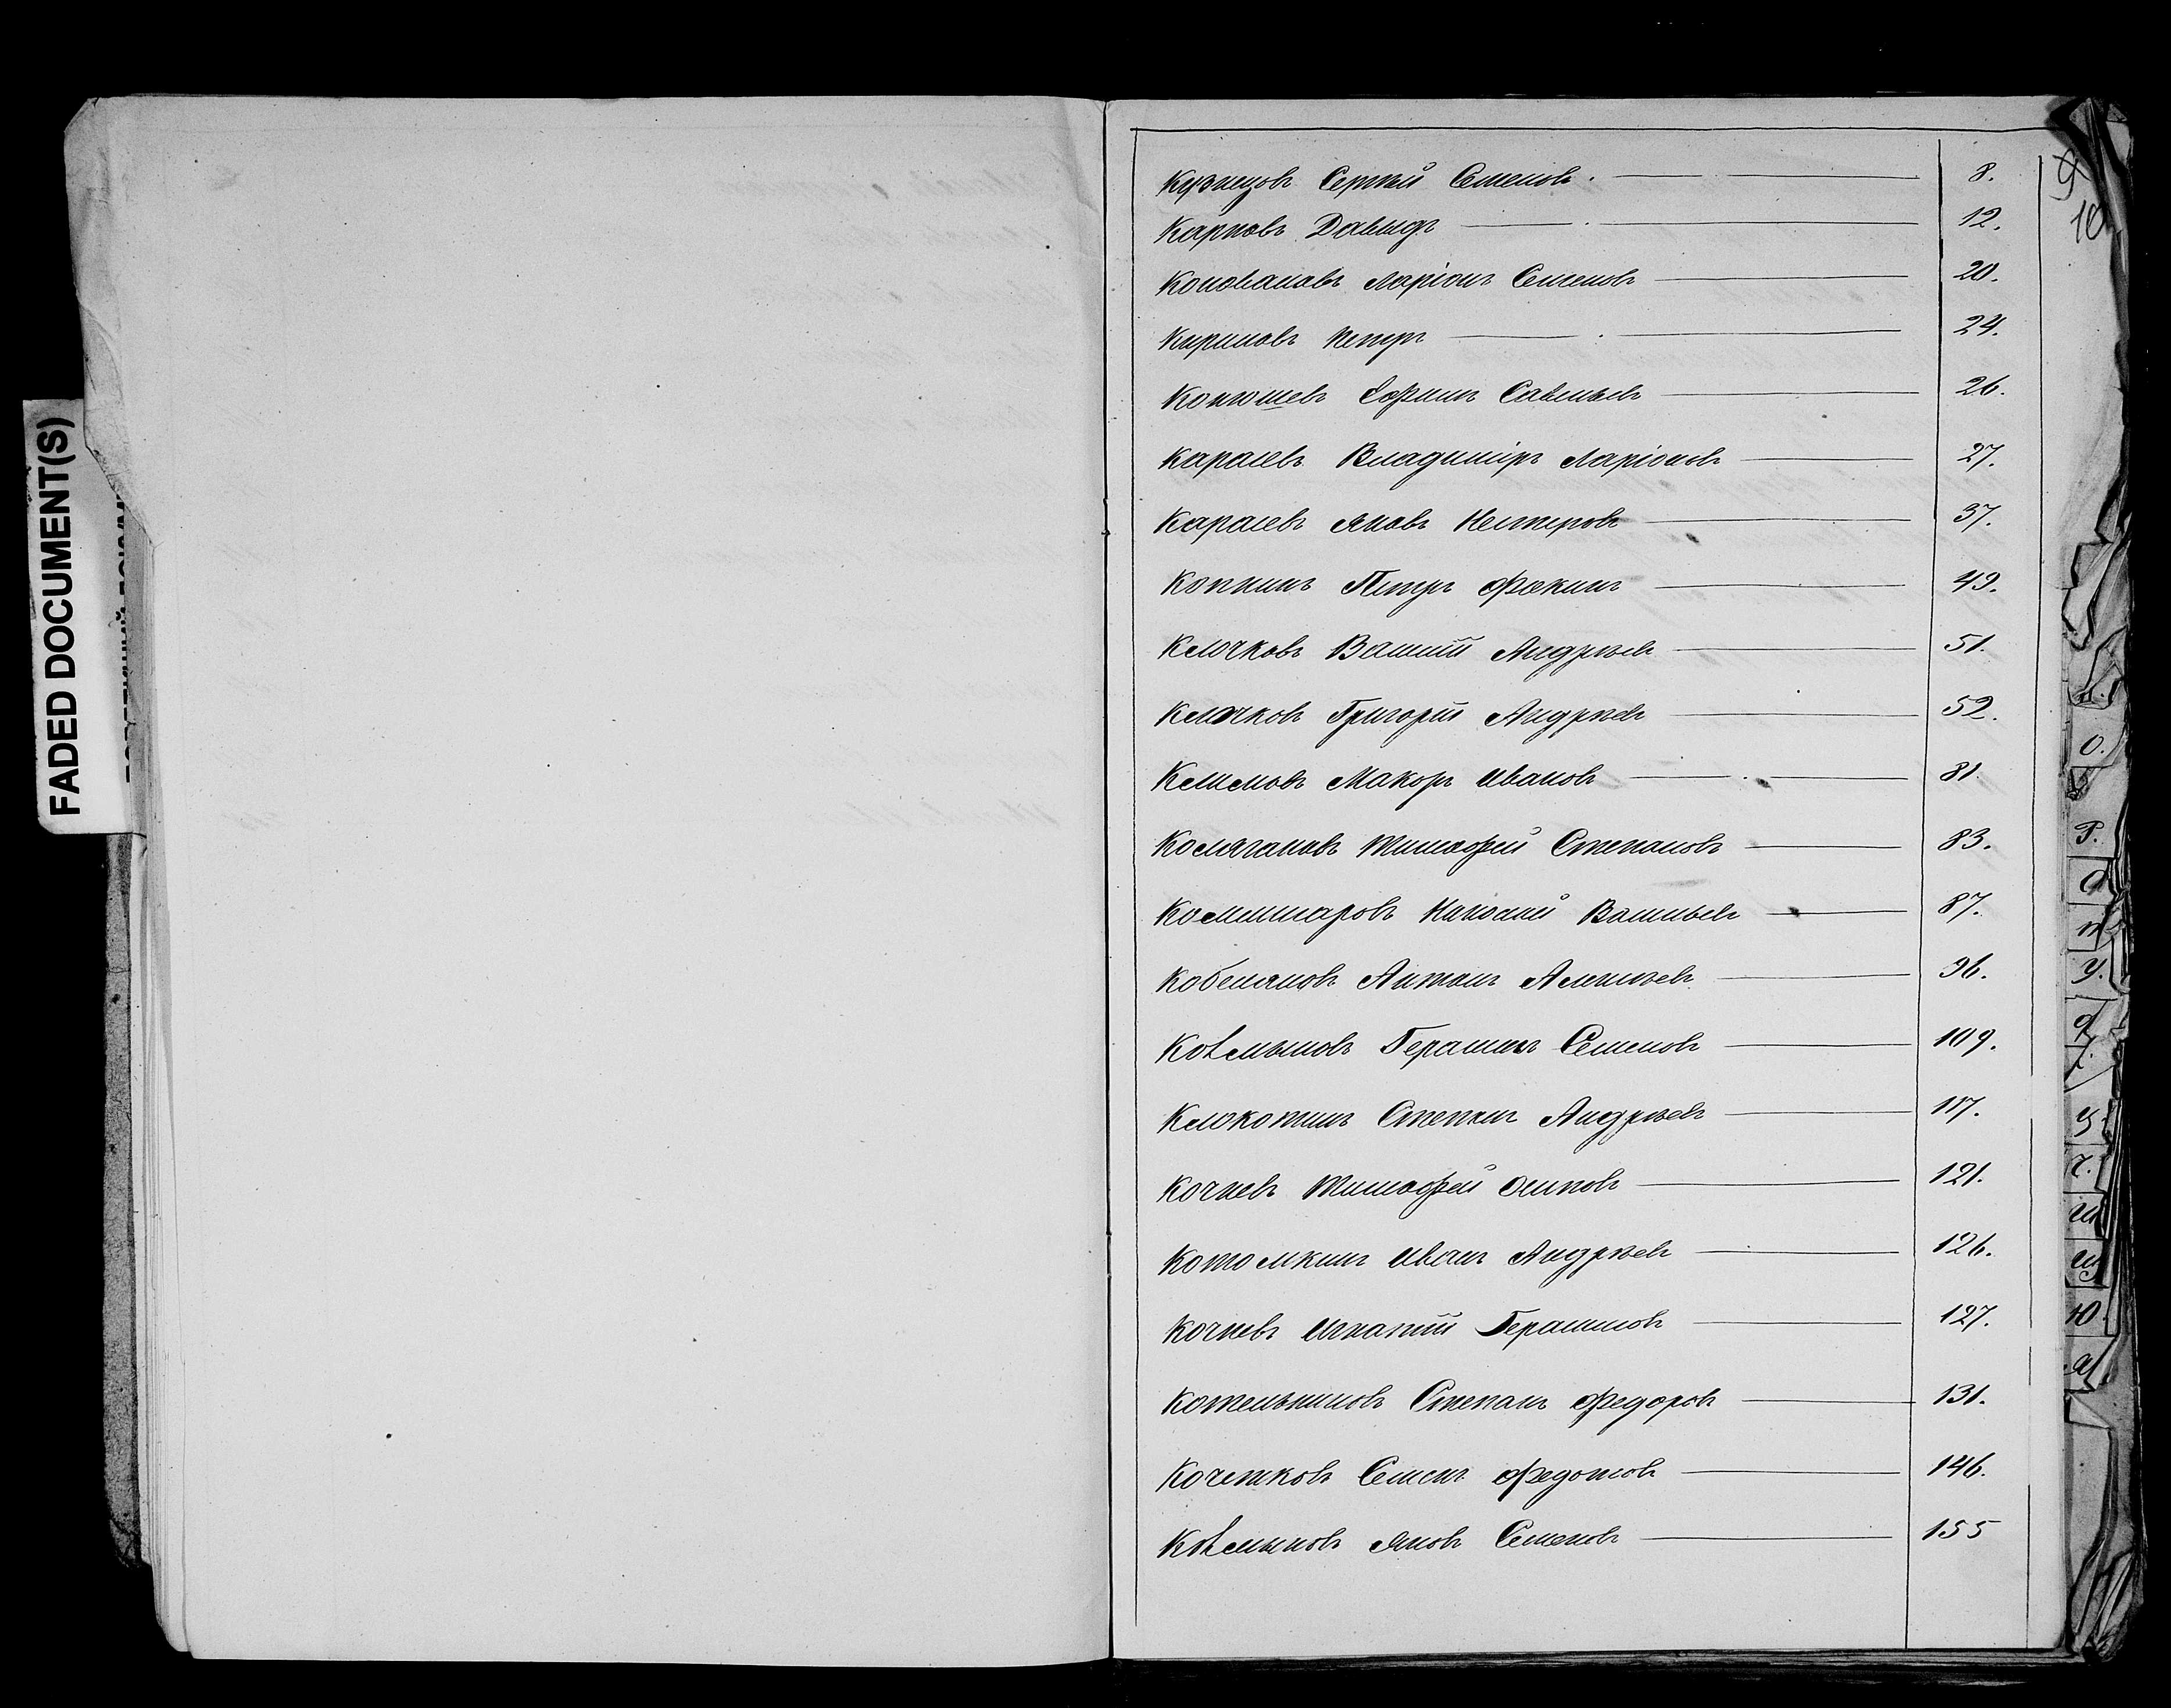 FADED DOCUMENT(S)
9
10
Кузнецовъ Сергѣй Семеновъ. 8.
Карповъ Давыдъ 12.
Коноваловъ Ларіонъ Семеновъ 20.
Кириловъ Петръ 24.
Конюшевъ Ефимъ Савельевъ 26.
Карасевъ Владиміръ Ларіоновъ 27.
Карасевъ Яковъ Нестеровъ 37.
Копнинъ Петръ 49.
Клочковъ Василій Андреевъ 51.
Клочковъ Григорій Андреевъ 52.
Климовъ Макаръ Ивановъ 81.
Колягановъ Тимофей Степановъ 83.
Комисаровъ Николай Васильевъ 87.
Кобеляковъ Антонъ Алексѣевъ 96.
Ковлыковъ Герасимъ Семеновъ 109.
Клокотинъ Степанъ Андреевъ 117.
Кочневъ Тимофей Осиповъ 121.
Котомкинъ Иванъ Андреевъ 126.
Кочневъ Игнатій Герасимовъ 127.
Котельниковъ Степанъ Федоровъ 131.
Кочетковъ Семенъ Федотовъ 146.
Ковлыковъ Яковъ Семеновъ 155
О.
Р.
С
У.
Ц
Ч.
Ш
Щ
Ю.
Я